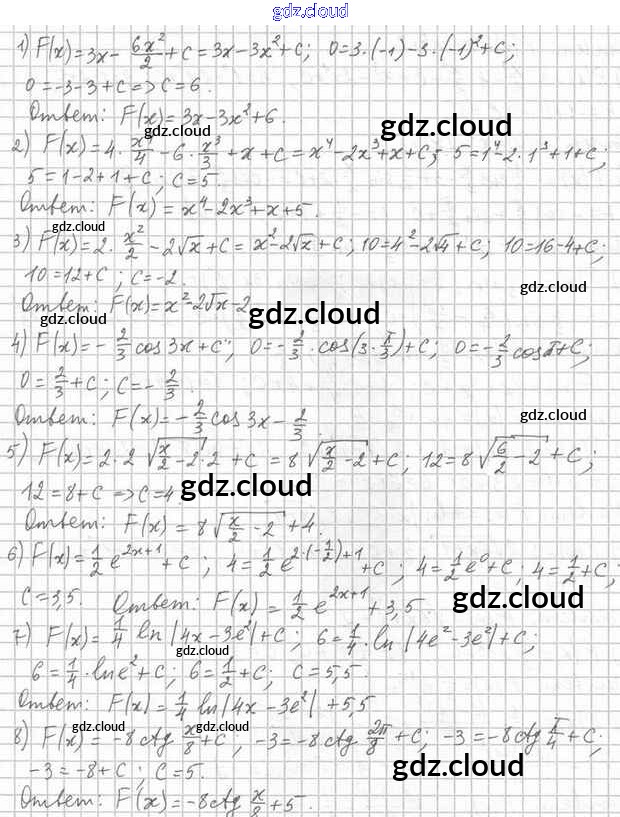 gdz.cloud
1) F(x)=3x-6x²/2+C=3x-3x²+C; 0=3·(-1)-3·(-1)²+C;
0=-3-3+C=>C=6.
Ответ: F(x)=3x-3x²+6.
gdz.cloud
2) F(x)=4·x⁴/4-6·x³/3+x+C=x⁴-2x³+x+C; 5=1⁴-2·1³+1+C;
5=1-2+1+C; C=5.
gdz.cloud
Ответ: F(x)=x⁴-2x³+x+5.
gdz.cloud
3) F(x)=2·x²/2-2√x+C=x²-2√x+C; 10=4²-2√4+C; 10=16-4+C;
10=12+C; C=-2.
gdz.cloud
Ответ: F(x)=x²-2√x-2
gdz.cloud
4) F(x)=-2/3 cos3x+C; 0=-2/3·cos(3·π/3)+C; 0=-2/3 cosπ+C;
0=2/3+C; C=-2/3.
Ответ: F(x)=-2/3 cos3x-2/3.
gdz.cloud
5) F(x)=2·2√(x/2-2)·2+C=8√(x/2-2)+C; 12=8√(6/2-2)+C;
12=8+C=>C=4
gdz.cloud
Ответ: F(x)=8√(x/2-2)+4.
6) F(x)=1/2 e^(2x+1)+C; 4=1/2 e^(2·(-1/2)+1)+C; 4=1/2 e⁰+C; 4=1/2+C;
gdz.cloud
C=3,5. Ответ: F(x)=1/2 e^(2x+1)+3,5.
gdz.cloud
7) F(x)=1/4 ln|4x-3e²|+C; 6=1/4·ln|4e²-3e²|+C;
6=1/4·lne²+C; 6=1/2+C; C=5,5.
gdz.cloud
Ответ: F(x)=1/4 ln|4x-3e²|+5,5
gdz.cloud gdz.cloud
8) F(x)=-8ctg x/8+C; -3=-8ctg 2π/8+C; -3=-8ctg π/4+C;
-3=-8+C; C=5.
gdz.cloud
Ответ: F(x)=-8ctg x/8+5.